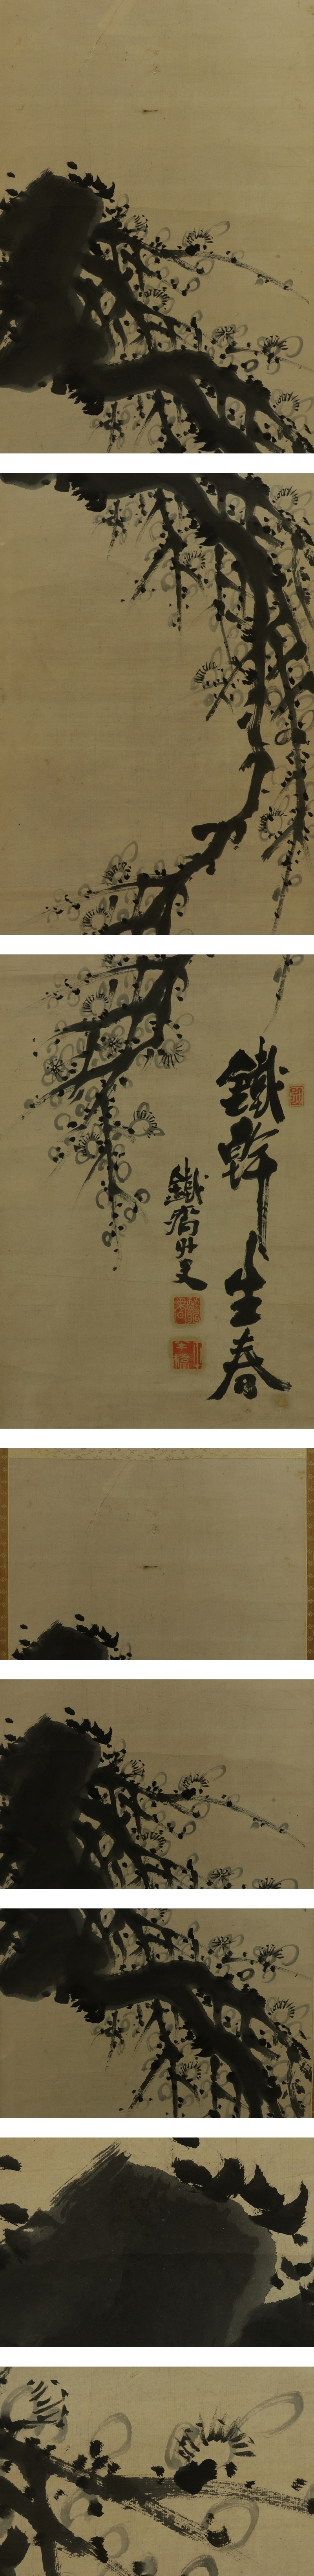 鐵幹生春
鐵齋外史